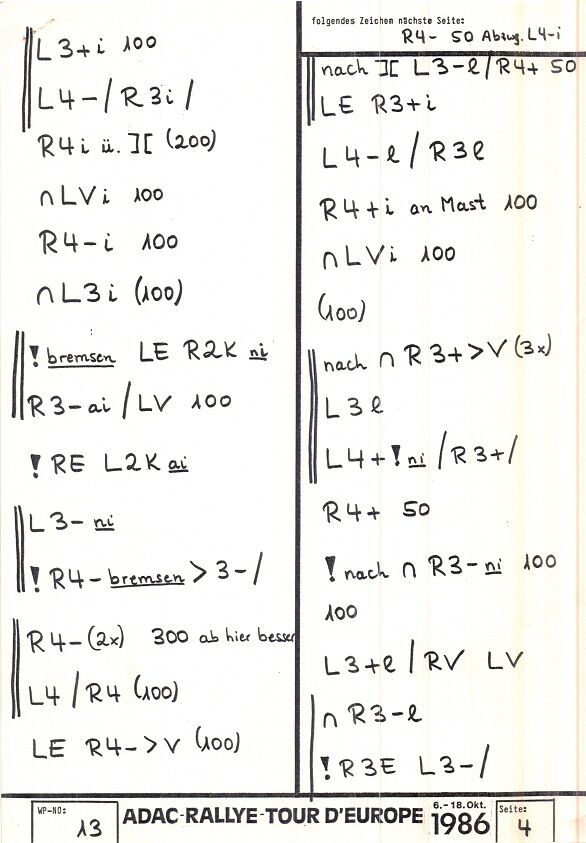 L3+i 100
L4-/R3i/
R4i ü. ][ (200)
∩LVi 100
R4-i 100
∩L3i (100)
! bremsen LE R2K ni
R3-ai/LV 100
! RE L2K ai
L3- ni
! R4- bremsen > 3-/
R4-(2x) 300 ab hier besser
L4/R4 (100)
LE R4->V (100)
folgendes Zeichen nächste Seite:
R4- 50 Abzwg. L4-i
nach ][ L3-l/R4+ 50
LE R3+i
L4-l/R3l
R4+i an Mast 100
∩LVi 100
(100)
nach ∩ R3+>V (3x)
L3l
L4+! ni /R3+/
R4+ 50
! nach ∩ R3- ni 100
100
L3+l/RV LV
∩ R3-l
! R3E L3-/
WP-NO: 13
ADAC-RALLYE-TOUR D'EUROPE
6.-18.Okt.
1986
Seite: 4